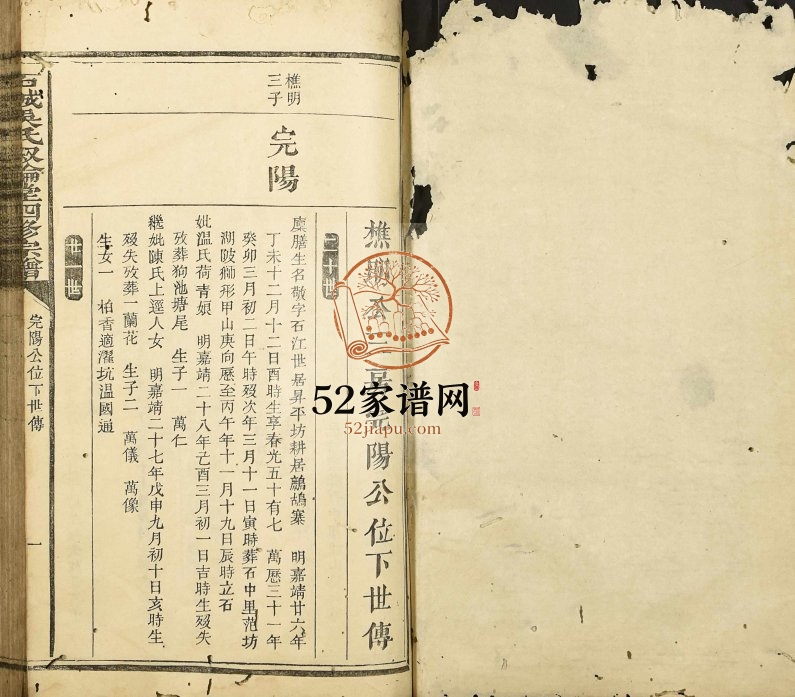 樵明公三房完陽公位下世傳
二十世
樵明
三子
完陽
廩膳生名敬字石江世居昇平坊耕居鷓鴣寨 明嘉靖廿六年
丁未十二月十二日酉時生享春光五十有七 萬歷三十一年
癸卯三月初二日午時歿次年三月十一日寅時葬石中里范坊
湖陂獅形甲山庚向歷至丙午年十一月十九日辰時立石
妣溫氏荷青娘 明嘉靖二十八年己酉三月初一日吉時生歿失
攷葬狗池塘尾 生子一 萬仁
繼妣陳氏上逕人女 明嘉靖二十七年戊申九月初十日亥時生
歿失攷葬一蘭花 生子二 萬儀 萬像
生女一 柏香適濯坑溫國通
世一世
石城吳氏敘倫堂四修宗譜
完陽公位下世傳
一
52家谱网
52jiapu.com